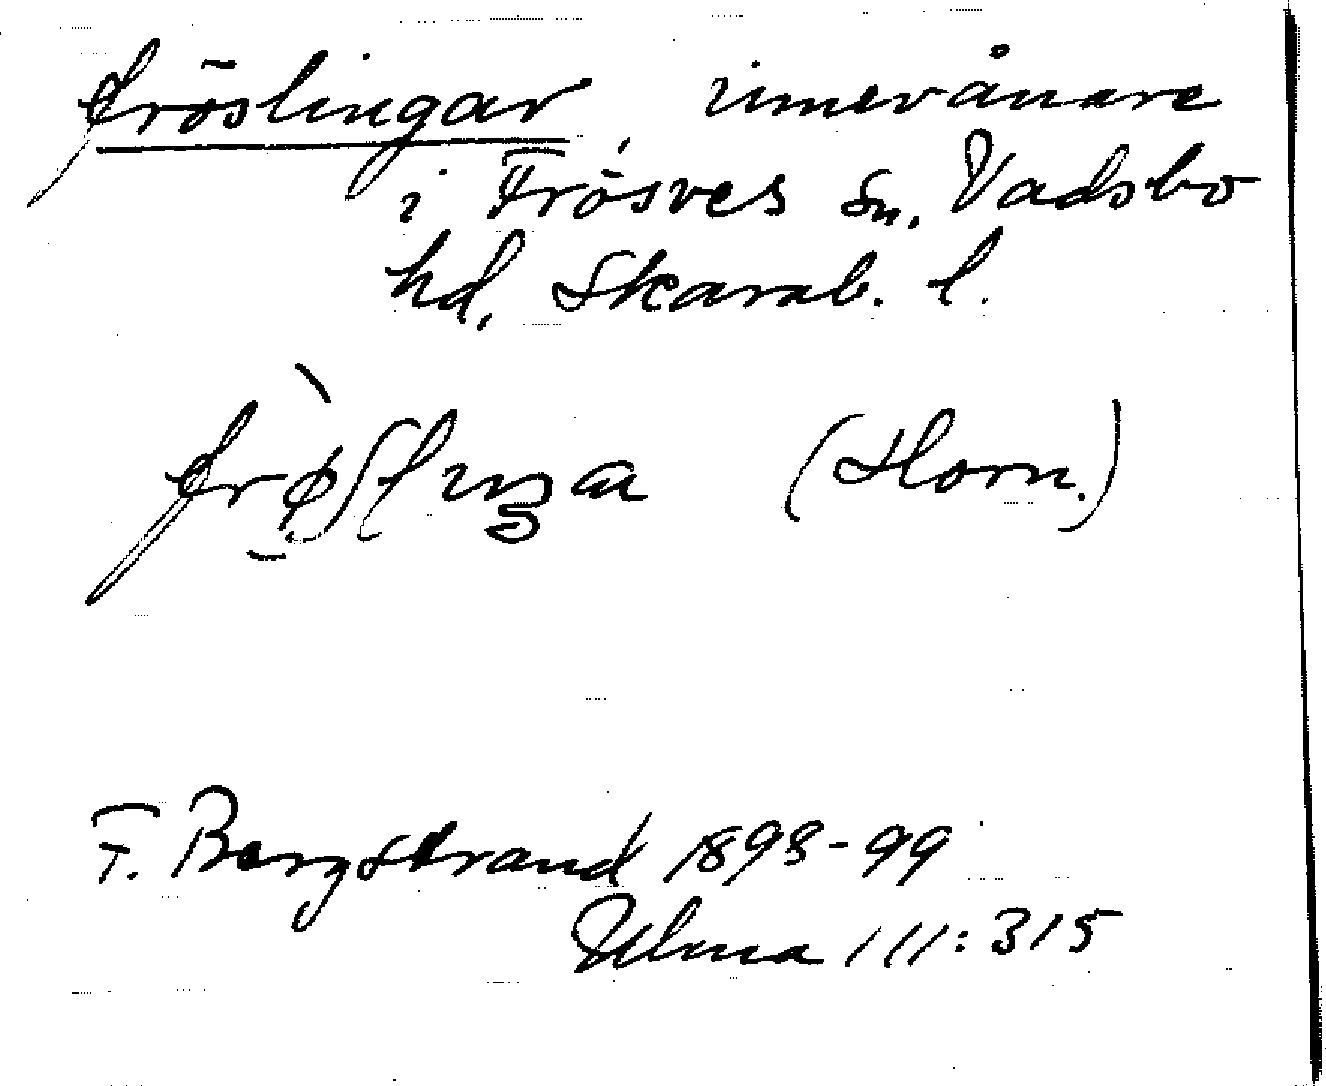 fröslingar, innevånare
i Frösves sn, Vadsbo
hd, Skarab. l.
(Horn.)
F. Bergstrand 1898-99
Ulma 111:315